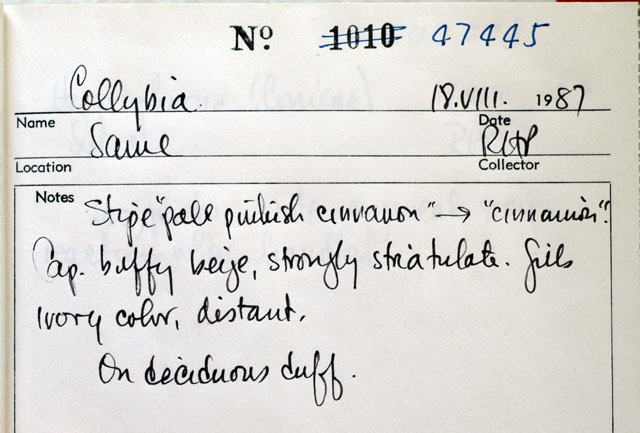 Nº 1010 47445
Collybia 18.VIII. 1987
Name Date
Same RHP
Location Collector
Notes Stipe "pale pinkish cinnamon" → "cinnamon".
Cap. buffy beige, strongly striatulate. Gills
ivory color, distant.
On deciduous duff.